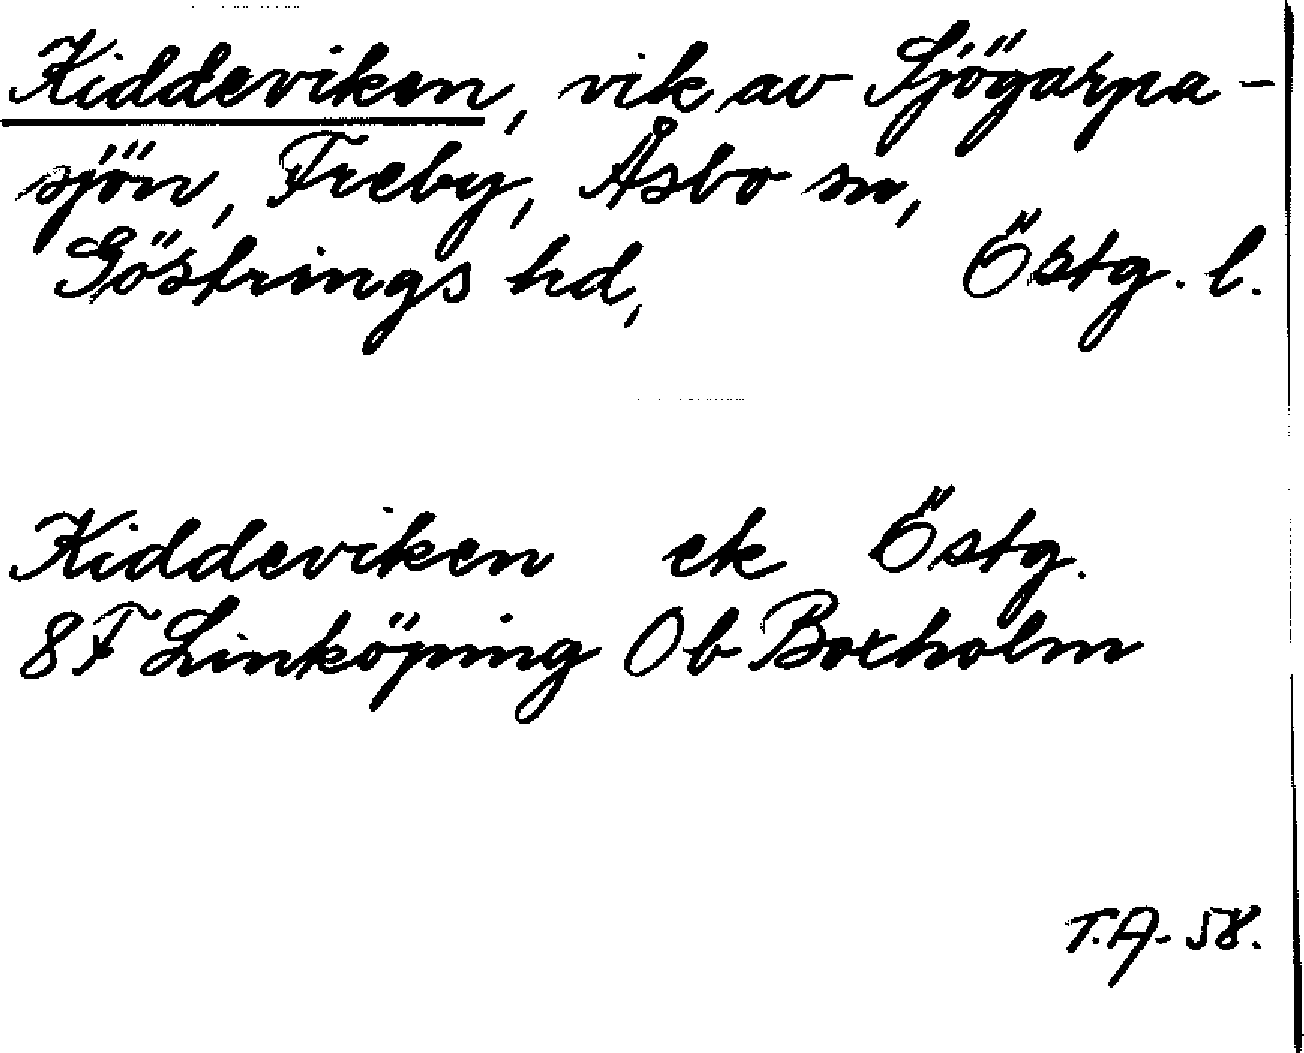 Kiddeviken, vik av Sjögarpa-
sjön, Freby, Åsbo sn,
Göstrings hd, Östg. l.
Kiddeviken ek Östg.
8F Linköping Ob Boxholm
T.A. 58.